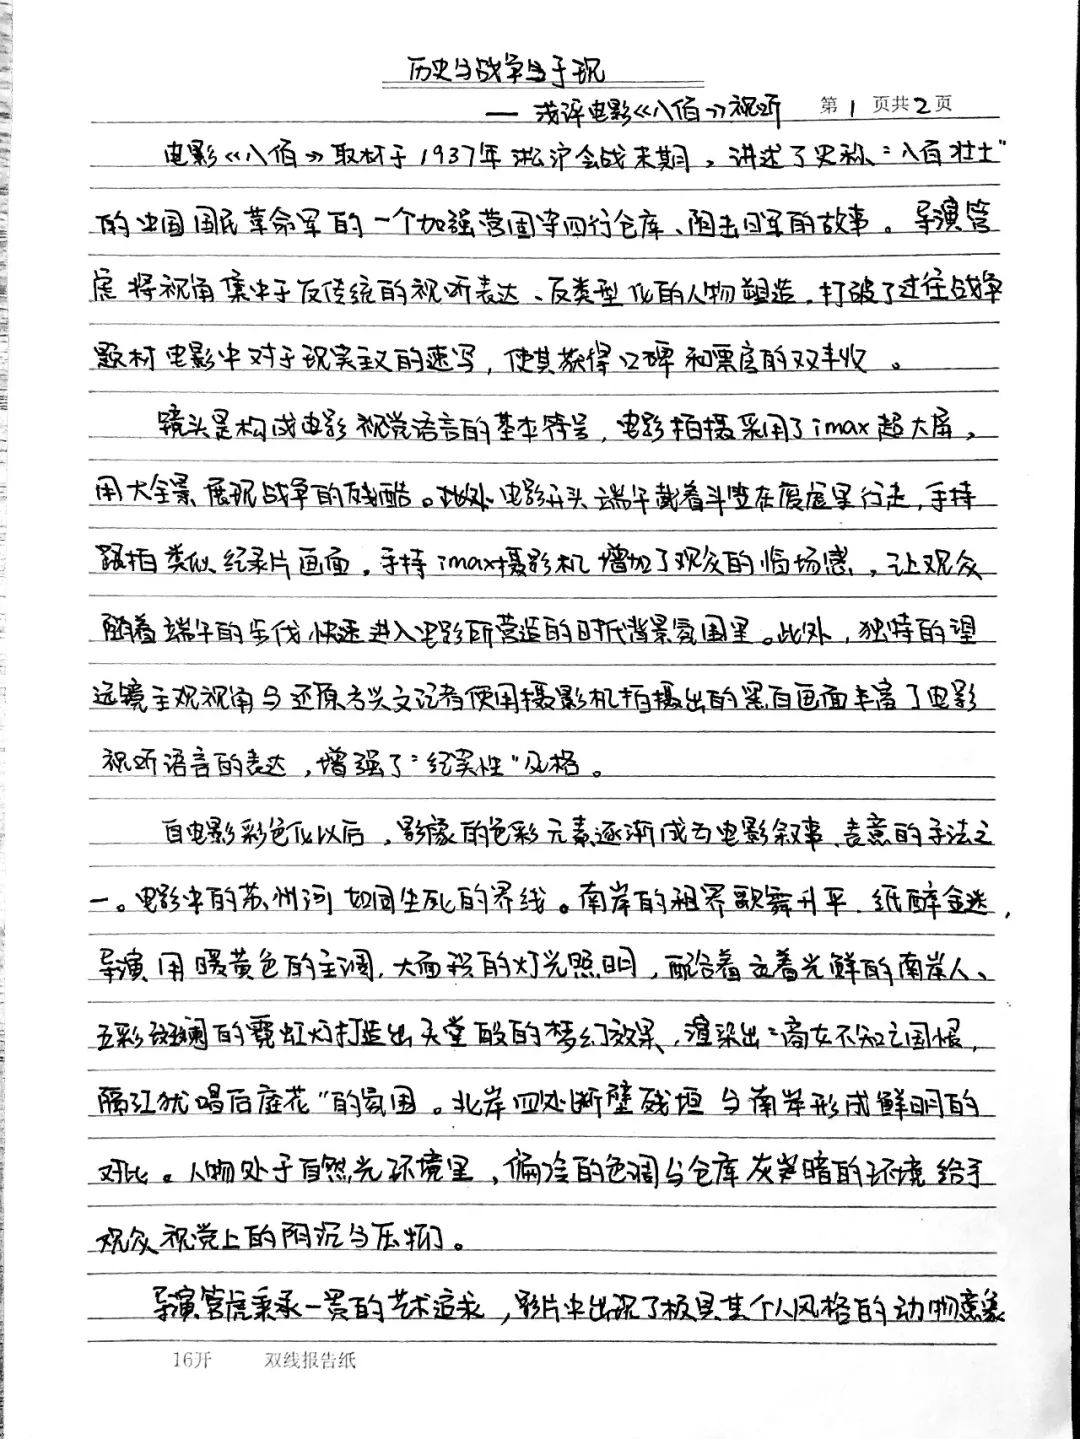 历史与战争与于现
— 浅评电影《八佰》视听 第1页共2页
电影《八佰》取材于1937年淞沪会战末期，讲述了史称"八百壮士"
的中国国民革命军的一个加强营固守四行仓库、阻击日军的故事。导演管
虎将视角集中于反传统的视听表达、反类型化的人物塑造，打破了过往战争
题材电影中对于现实主义的速写，使其获得口碑和票房的双丰收。
镜头是构成电影视觉语言的基本符号，电影拍摄采用了imax超大屏，
用大全景展现战争的残酷。此处电影开头端午戴着斗笠在废虚里行走，手持
跟拍类似纪录片画面，手持imax摄影机增加了观众的临场感，让观众
随着端午的步伐快速进入电影所营造的时代背景氛围里。此外，独特的望
远镜主观视角与还原方兴文记者使用摄影机拍摄出的黑白画面丰富了电影
视听语言的表达，增强了"纪实性"风格。
自电影彩色化以后，影像的色彩元素逐渐成为电影叙事、表意的手法之
一。电影中的苏州河如同生死的界线。南岸的租界歌舞升平、纸醉金迷，
导演用暖黄色的主调，大面积的灯光照明，配合着衣着光鲜的南岸人、
五彩斑斓的霓虹灯打造出天堂般的梦幻效果，渲染出"商女不知亡国恨，
隔江犹唱后庭花"的氛围。北岸四处断壁残垣与南岸形成鲜明的
对比。人物处于自然光环境里，偏冷的色调与仓库灰暗的环境给予
观众视觉上的阴沉与压抑。
导演管虎秉承一贯的艺术追求，影片中出现了极具其个人风格的动物意象
16开 双线报告纸